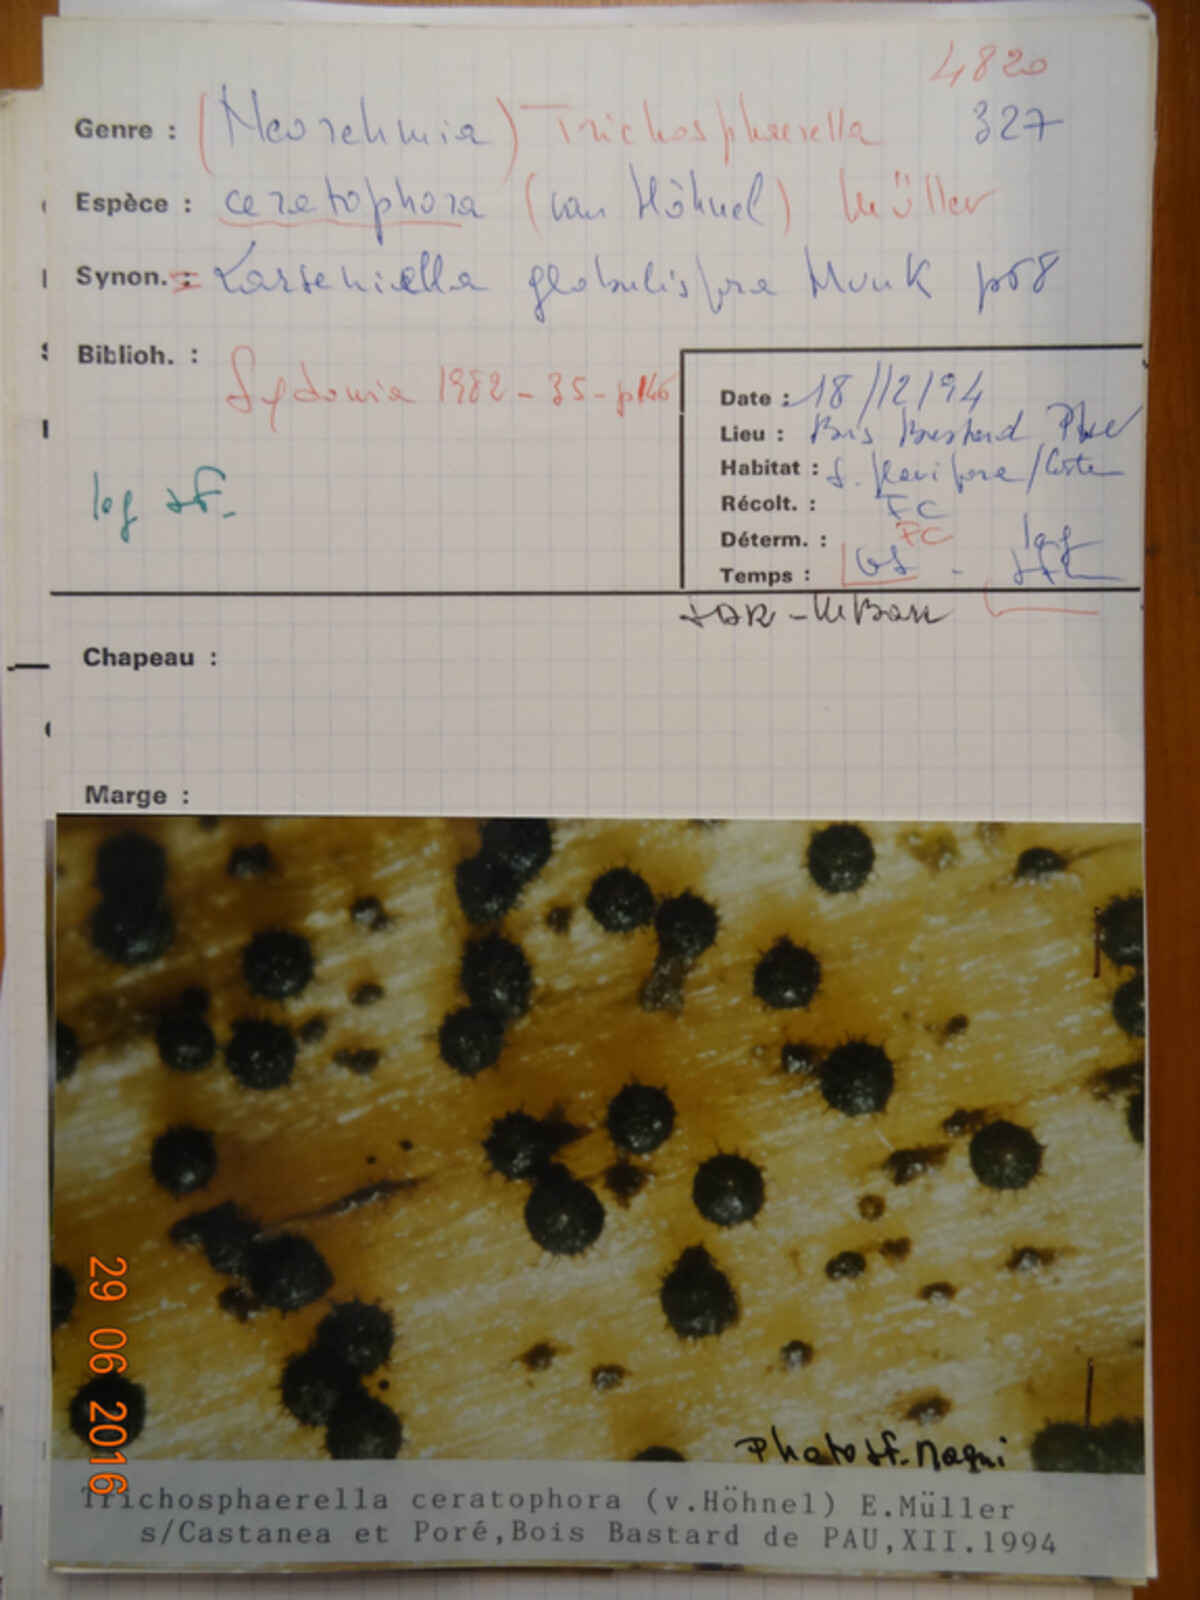 4820
Genre : (Neorehmia) Trichosphaerella 327
Espèce : ceratophora (von Höhnel) Müller
Synon. := Larseniella globulispora Munk p68
Biblioh. :
Sydowia 1982 - 35 - p146
Date : 18/12/94
Lieu : Bois Bastard Pau
Habitat : S. flavipora / Casta
Récolt. : FC
leg JF.
Déterm. : FC
Temps :
Chapeau :
Marge :
29 06 2016
Photo JF. Magni
Trichosphaerella ceratophora (v.Höhnel) E.Müller
s/Castanea et Poré,Bois Bastard de PAU,XII.1994